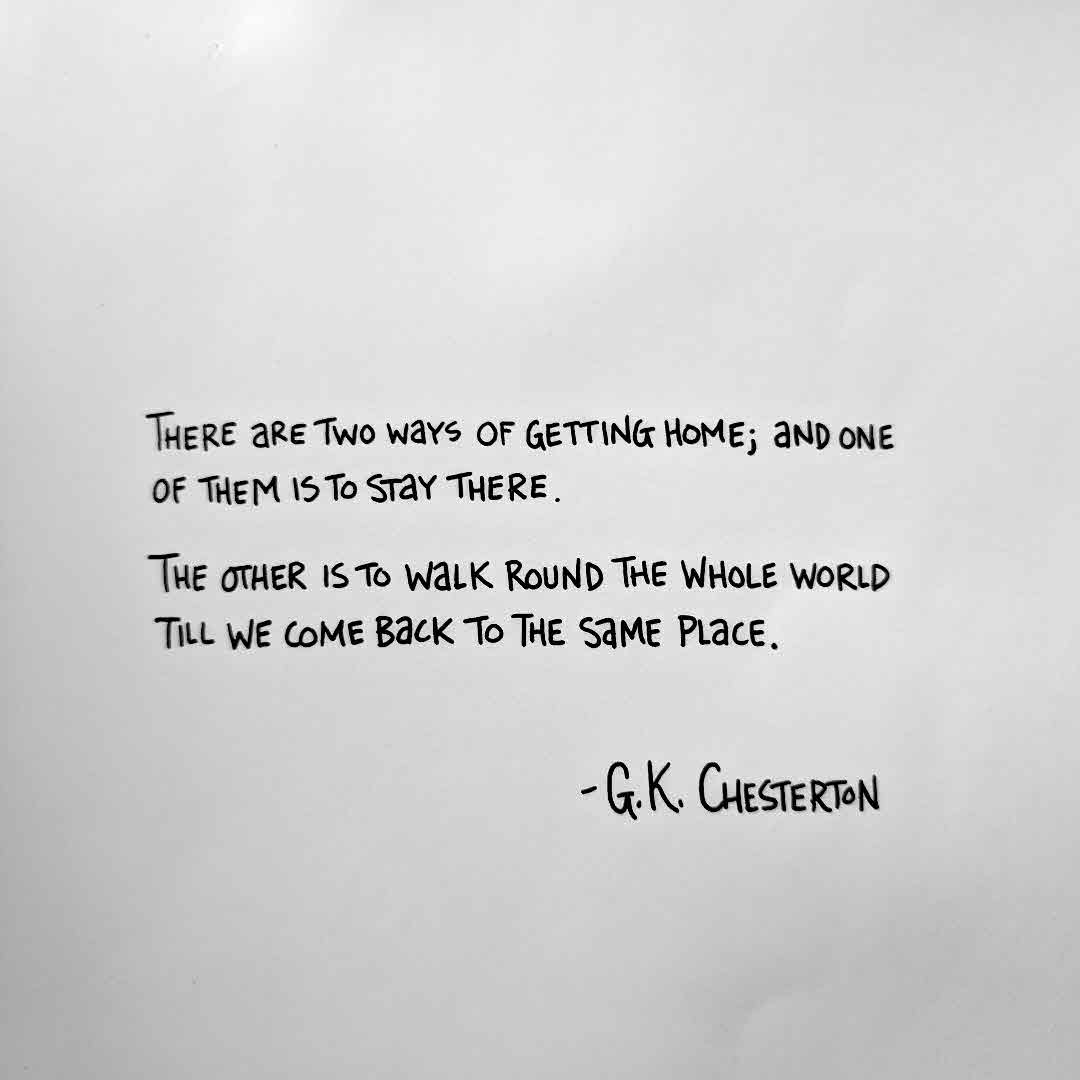 There are two ways of getting home; and one
of them is to stay there.
The other is to walk round the whole world
till we come back to the same place.
- G.K. Chesterton